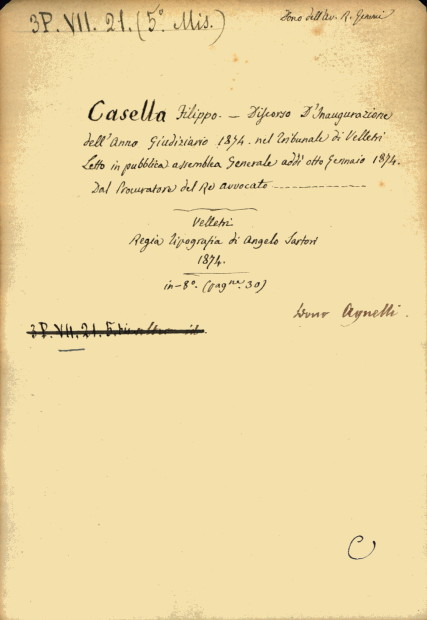 3P. VII. 21. (5° Mis.)
Dono dell'Av. R.
Casella Filippo. — Discorso D'Inaugurazione
dell'Anno Giudiziario 1874. nel Tribunale di Velletri
Letto in pubblica assemblea Generale addì otto Gennaio 1874.
Dal Procuratore del Re avvocato
Velletri
Regia Tipografia di Angelo Sartori
1874.
in-8° (pagne. 30)
Dono Agnelli.
3P. VII. 21. 5.
C